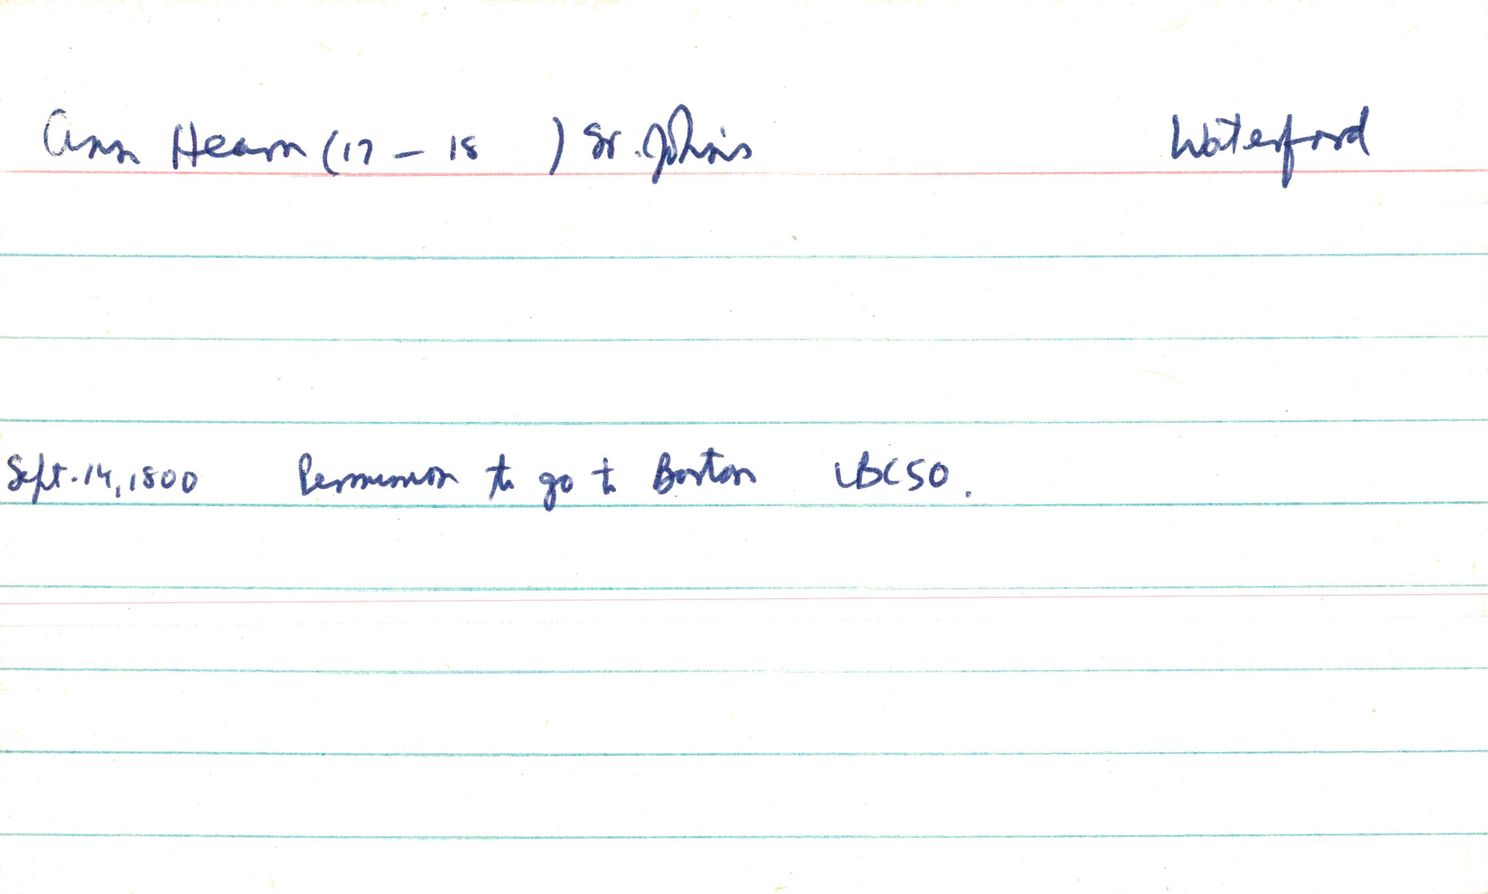 Ann Hearn (17 – 18 ) St. John's Waterford
Sept. 14, 1800 Permission to go to Boston LBCSO.